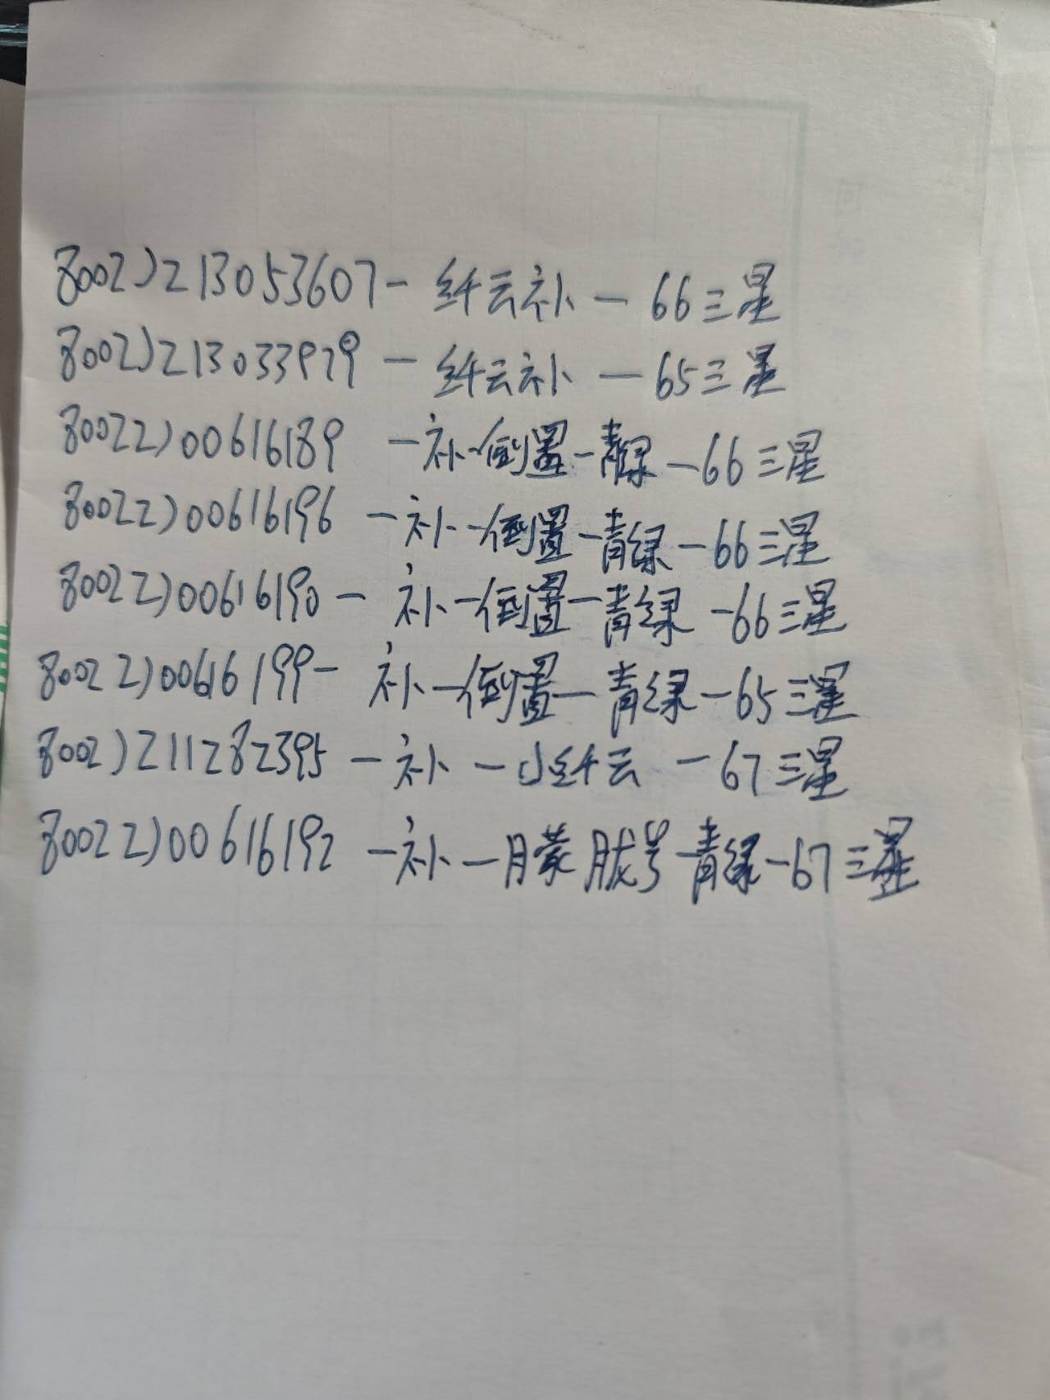 8002)213053607-纤云补-66三星
8002)213033979-纤云补-65三星
80022)00616189-补-倒置-青绿-66三星
80022)00616196-补-倒置-青绿-66三星
80022)00616190-补-倒置-青绿-66三星
80022)00616199-补-倒置-青绿-65三星
8002)211282395-补-小纤云-67三星
80022)00616192-补-月蒙胧号-青绿-67三星